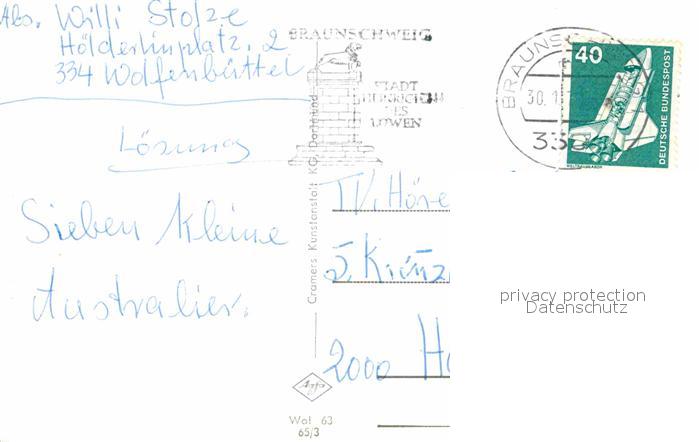 Abs. Willi Stolze
Hölderlinplatz. 2
334 Wolfenbüttel
Lösung
Sieben kleine
Australier.
BRAUNSCHWEIG
STADT
HEINRICHS
DES
LÖWEN
Cramers Kunstanstalt KG, Dortmund
TV. Höre
2000 H
Agfa
Wol 63
65/3
BRAUNS
30.1
338
40
DEUTSCHE BUNDESPOST
WELTRAUMLABOR
privacy protection
Datenschutz